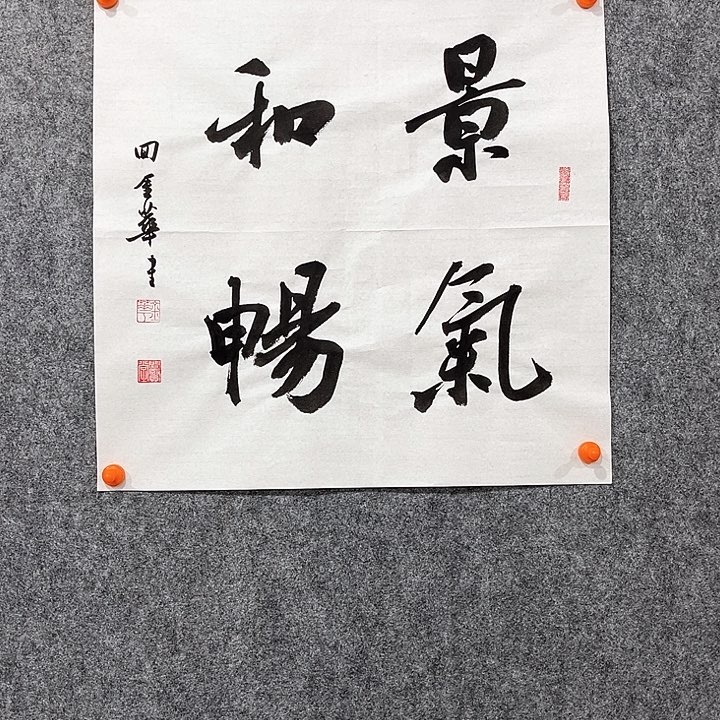 景氣
和暢
田金華書